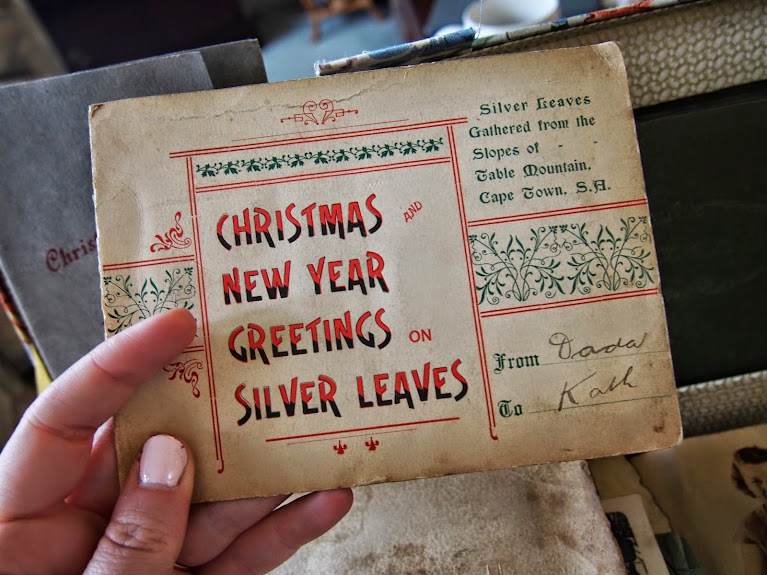 Silver Leaves
Gathered from the
Slopes of - -
Table Mountain,
Cape Town, S.A.
CHRISTMAS AND
NEW YEAR
GREETINGS ON
SILVER LEAVES
From Dada
To Kath
Christ